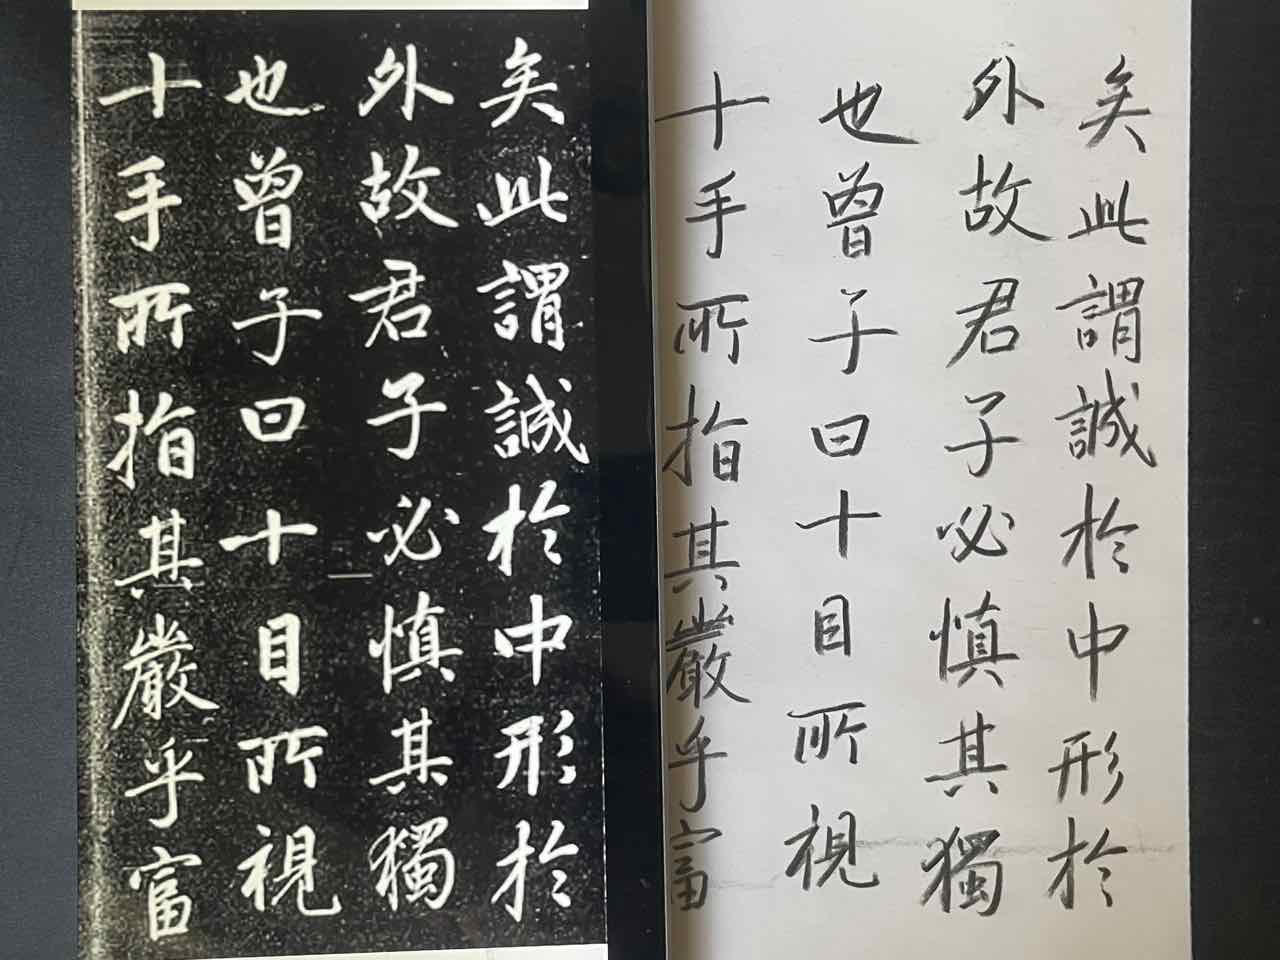 矣此謂誠於中形於
外故君子必慎其獨
也曾子曰十目所視
十手所指其嚴乎富
矣此謂誠於中形於
外故君子必慎其獨
也曾子曰十目所視
十手所指其嚴乎富